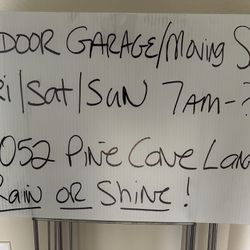 DOOR GARAGE/Moving S
RI/Sat/Sun 7AM-?
052 Pine Cone Lan
RAIN OR SHINE!